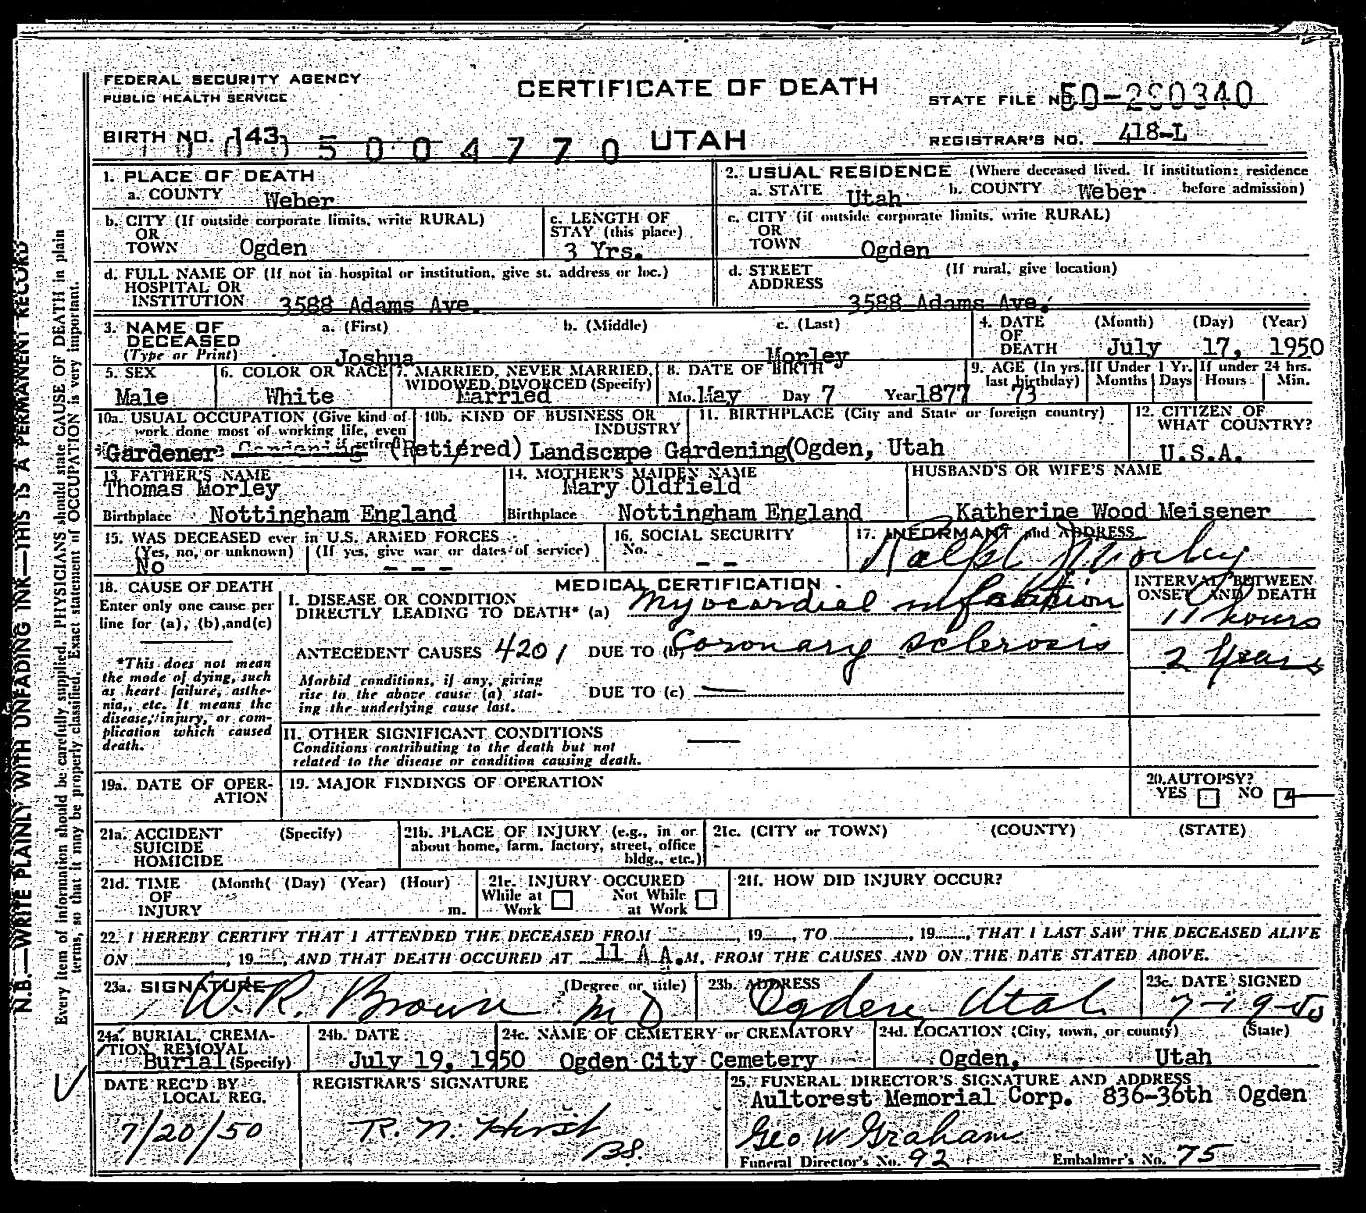 FEDERAL SECURITY AGENCY
PUBLIC HEALTH SERVICE
CERTIFICATE OF DEATH
STATE FILE NO. 50-290340
BIRTH NO. 143
5004770
UTAH
REGISTRAR'S NO. 418-L
1. PLACE OF DEATH
a. COUNTY Weber
2. USUAL RESIDENCE (Where deceased lived. If institution: residence before admission)
a. STATE Utah b. COUNTY Weber
b. CITY (If outside corporate limits, write RURAL)
OR
TOWN Ogden
c. LENGTH OF
STAY (this place)
3 Yrs.
c. CITY (if outside corporate limits, write RURAL)
OR
TOWN Ogden
d. FULL NAME OF (If not in hospital or institution, give st. address or loc.)
HOSPITAL OR
INSTITUTION 3588 Adams Ave.
d. STREET (If rural, give location)
ADDRESS
3588 Adams Ave.
3. NAME OF
DECEASED
(Type or Print)
a. (First) b. (Middle) c. (Last)
Joshua Morley
4. DATE
OF
DEATH
(Month) (Day) (Year)
July 17, 1950
5. SEX
Male
6. COLOR OR RACE
White
7. MARRIED, NEVER MARRIED,
WIDOWED, DIVORCED (Specify)
Married
8. DATE OF BIRTH
Mo. May Day 7 Year 1877
9. AGE (In yrs.
last birthday)
73
If Under 1 Yr.
Months Days
If under 24 hrs.
Hours Min.
10a. USUAL OCCUPATION (Give kind of
work done most of working life, even
if retired)
Gardener (Retired)
10b. KIND OF BUSINESS OR
INDUSTRY
Landscape Gardening
11. BIRTHPLACE (City and State or foreign country)
(Ogden, Utah
12. CITIZEN OF
WHAT COUNTRY?
U.S.A.
13. FATHER'S NAME
Thomas Morley
Birthplace Nottingham England
14. MOTHER'S MAIDEN NAME
Mary Oldfield
Birthplace Nottingham England
HUSBAND'S OR WIFE'S NAME
Katherine Wood Meisener
15. WAS DECEASED ever in U.S. ARMED FORCES
(Yes, no, or unknown) (If yes, give war or dates of service)
No - - -
16. SOCIAL SECURITY
No.
- -
17. INFORMANT and ADDRESS
Ralph Morley
18. CAUSE OF DEATH
Enter only one cause per
line for (a), (b), and (c)
*This does not mean
the mode of dying, such
as heart failure, asthe-
nia,, etc. It means the
disease, injury, or com-
plication which caused
death.
MEDICAL CERTIFICATION
I. DISEASE OR CONDITION
DIRECTLY LEADING TO DEATH* (a) Myocardial infarction
ANTECEDENT CAUSES 4201 DUE TO (b) Coronary sclerosis
Morbid conditions, if any, giving
rise to the above cause (a) stat-
ing the underlying cause last.
DUE TO (c) —
II. OTHER SIGNIFICANT CONDITIONS —
Conditions contributing to the death but not
related to the disease or condition causing death.
INTERVAL BETWEEN
ONSET AND DEATH
11 hours
2 Years
19a. DATE OF OPER-
ATION
19. MAJOR FINDINGS OF OPERATION
20. AUTOPSY?
YES NO
21a. ACCIDENT (Specify)
SUICIDE
HOMICIDE
21b. PLACE OF INJURY (e.g., in or
about home, farm, factory, street, office
bldg., etc.)
21c. (CITY or TOWN) (COUNTY) (STATE)
21d. TIME (Month( (Day) (Year) (Hour)
OF
INJURY m.
21e. INJURY OCCURED
While at Work Not While at Work
21f. HOW DID INJURY OCCUR?
22. I HEREBY CERTIFY THAT I ATTENDED THE DECEASED FROM , 19 , TO , 19 , THAT I LAST SAW THE DECEASED ALIVE
ON , 19 , AND THAT DEATH OCCURED AT 11 A A.M. FROM THE CAUSES AND ON THE DATE STATED ABOVE.
23a. SIGNATURE (Degree or title)
W. R. Brown MD
23b. ADDRESS
Ogden, Utah
23c. DATE SIGNED
7-19-50
24a. BURIAL, CREMA-
TION, REMOVAL
Burial (Specify)
24b. DATE
July 19, 1950
24c. NAME OF CEMETERY or CREMATORY
Ogden City Cemetery
24d. LOCATION (City, town, or county) (State)
Ogden, Utah
DATE REC'D BY
LOCAL REG.
7/20/50
REGISTRAR'S SIGNATURE
R. N. Hirst
BS.
25. FUNERAL DIRECTOR'S SIGNATURE AND ADDRESS
Aultorest Memorial Corp. 836-36th Ogden
Geo W Graham
Funeral Director's No. 92 Embalmer's No. 75
N.B.—WRITE PLAINLY WITH UNFADING INK—THIS IS A PERMANENT RECORD
Every item of information should be carefully supplied. PHYSICIANS should state CAUSE OF DEATH in plain
terms, so that it may be properly classified. Exact statement of OCCUPATION is very important.